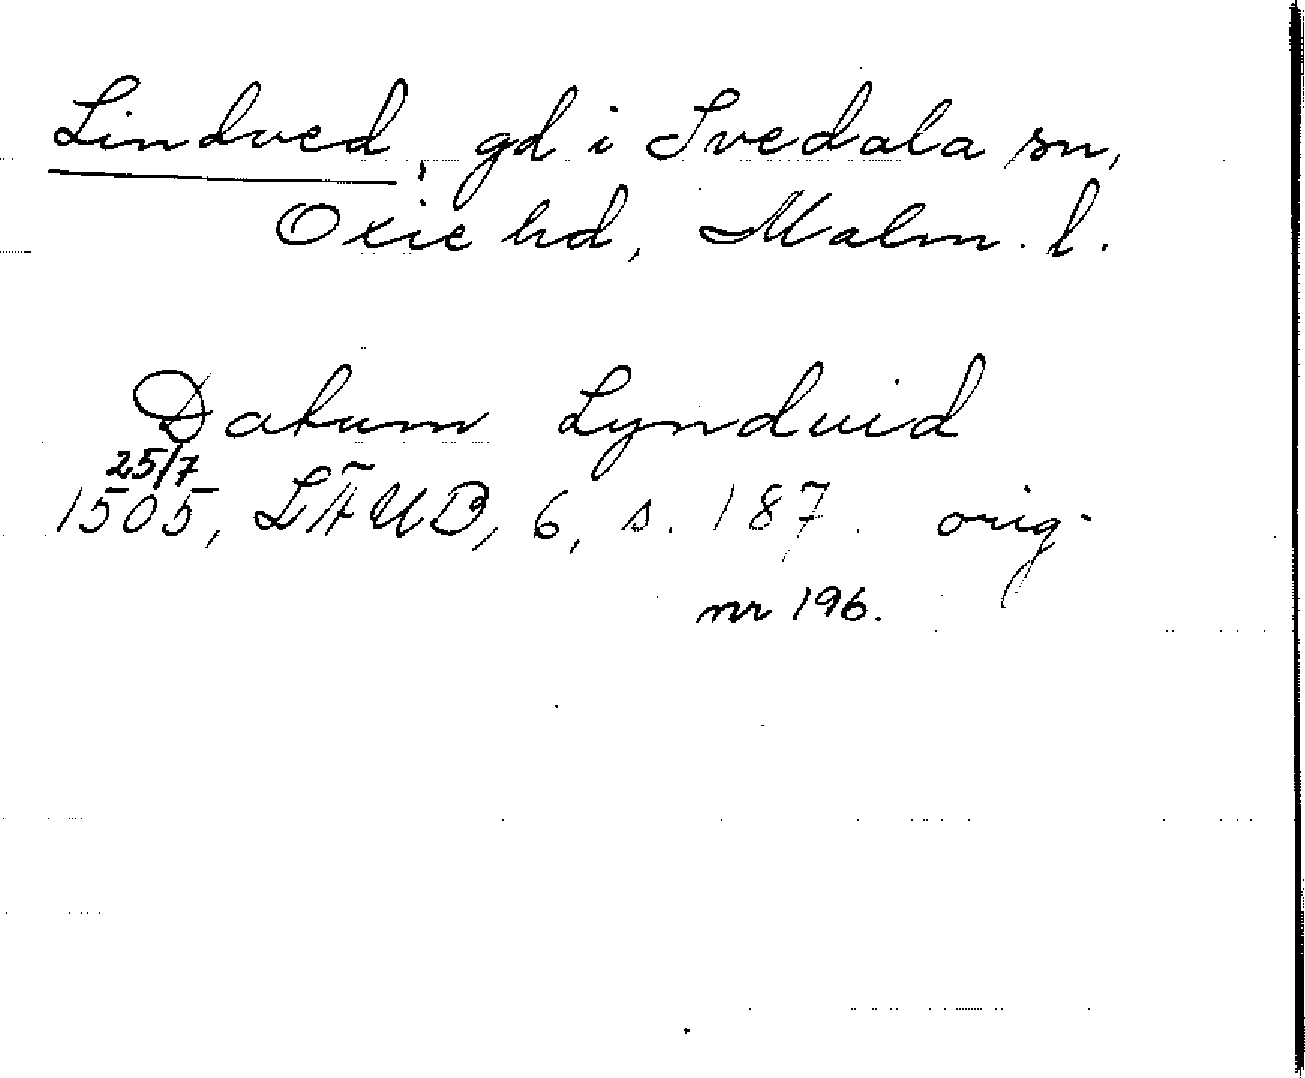 Lindved, gd i Svedala sn,
Oxie hd, Malm. l.
Datum Lynduid
25/7
1505, LÄUB, 6, s. 187. orig.
nr 196.